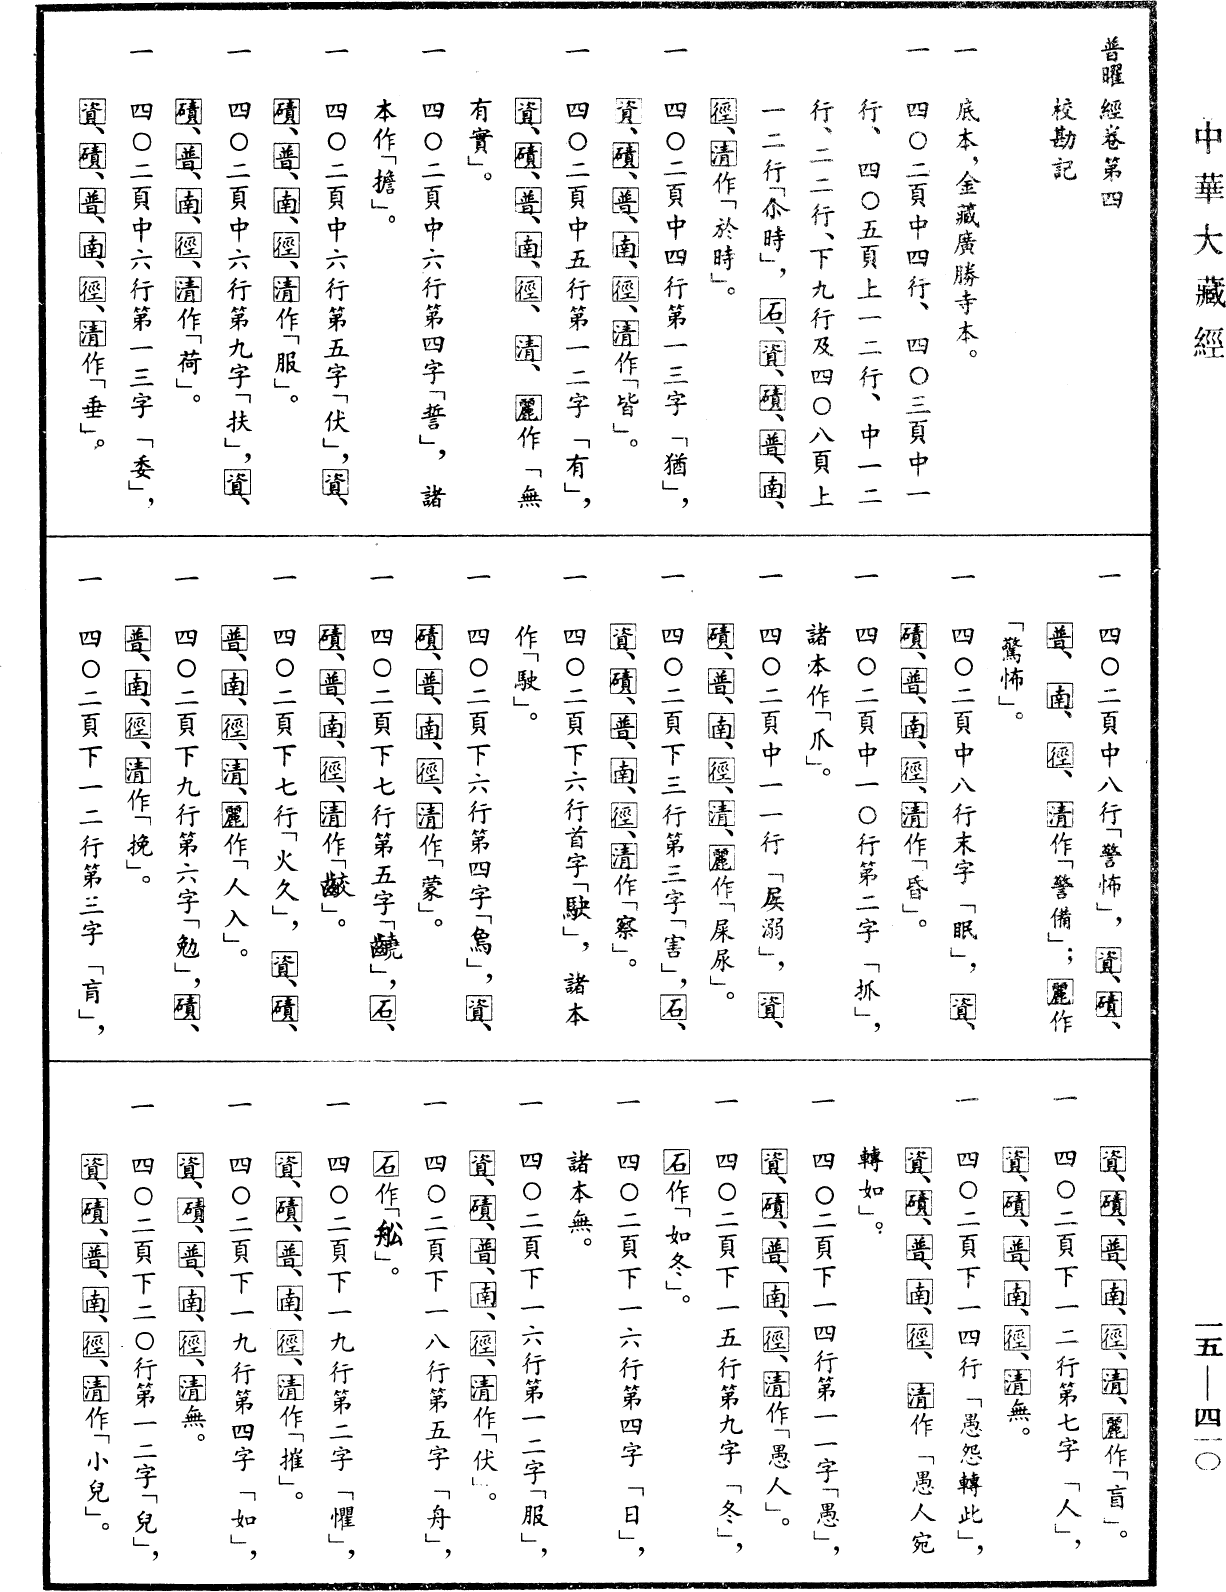 中華大藏經
普曜經卷第四
校勘記
一 底本，金藏廣勝寺本。
一 四〇二頁中四行、四〇三頁中一
行、四〇五頁上一二行、中一二
行、二二行、下九行及四〇八頁上
一二行「尒時」，石、資、磧、普、南、
徑、清作「於時」。
一 四〇二頁中四行第一三字「猶」，
資、磧、普、南、徑、清作「皆」。
一 四〇二頁中五行第一二字「有」，
資、磧、普、南、徑、清、麗作「無
有實」。
一 四〇二頁中六行第四字「誓」，諸
本作「擔」。
一 四〇二頁中六行第五字「伏」，資、
磧、普、南、徑、清作「服」。
一 四〇二頁中六行第九字「扶」，資、
磧、普、南、徑、清作「荷」。
一 四〇二頁中六行第一三字「委」，
資、磧、普、南、徑、清作「垂」。
一 四〇二頁中八行「警怖」，資、磧、
普、南、徑、清作「警備」；麗作
「驚怖」。
一 四〇二頁中八行末字「眠」，資、
磧、普、南、徑、清作「昏」。
一 四〇二頁中一〇行第二字「抓」，
諸本作「爪」。
一 四〇二頁中一一行「屎溺」，資、
磧、普、南、徑、清、麗作「屎尿」。
一 四〇二頁下三行第三字「害」，石、
資、磧、普、南、徑、清作「察」。
一 四〇二頁下六行首字「駃」，諸本
作「駛」。
一 四〇二頁下六行第四字「𤉷」，資、
磧、普、南、徑、清作「蒙」。
一 四〇二頁下七行第五字「齩」，石、
磧、普、南、徑、清作「齩」。
一 四〇二頁下七行「火久」，資、磧、
普、南、徑、清、麗作「人入」。
一 四〇二頁下九行第六字「勉」，磧、
普、南、徑、清作「挽」。
一 四〇二頁下一二行第三字「肓」，
資、磧、普、南、徑、清、麗作「盲」。
一 四〇二頁下一二行第七字「人」，
資、磧、普、南、徑、清無。
一 四〇二頁下一四行「愚怨轉此」，
資、磧、普、南、徑、清作「愚人宛
轉如」。
一 四〇二頁下一四行第一一字「愚」，
資、磧、普、南、徑、清作「愚人」。
一 四〇二頁下一五行第九字「冬」，
石作「如冬」。
一 四〇二頁下一六行第四字「日」，
諸本無。
一 四〇二頁下一六行第一二字「服」，
資、磧、普、南、徑、清作「伏」。
一 四〇二頁下一八行第五字「舟」，
石作「舩」。
一 四〇二頁下一九行第二字「懼」，
資、磧、普、南、徑、清作「摧」。
一 四〇二頁下一九行第四字「如」，
資、磧、普、南、徑、清無。
一 四〇二頁下二〇行第一二字「兒」，
資、磧、普、南、徑、清作「小兒」。
一五—四一〇